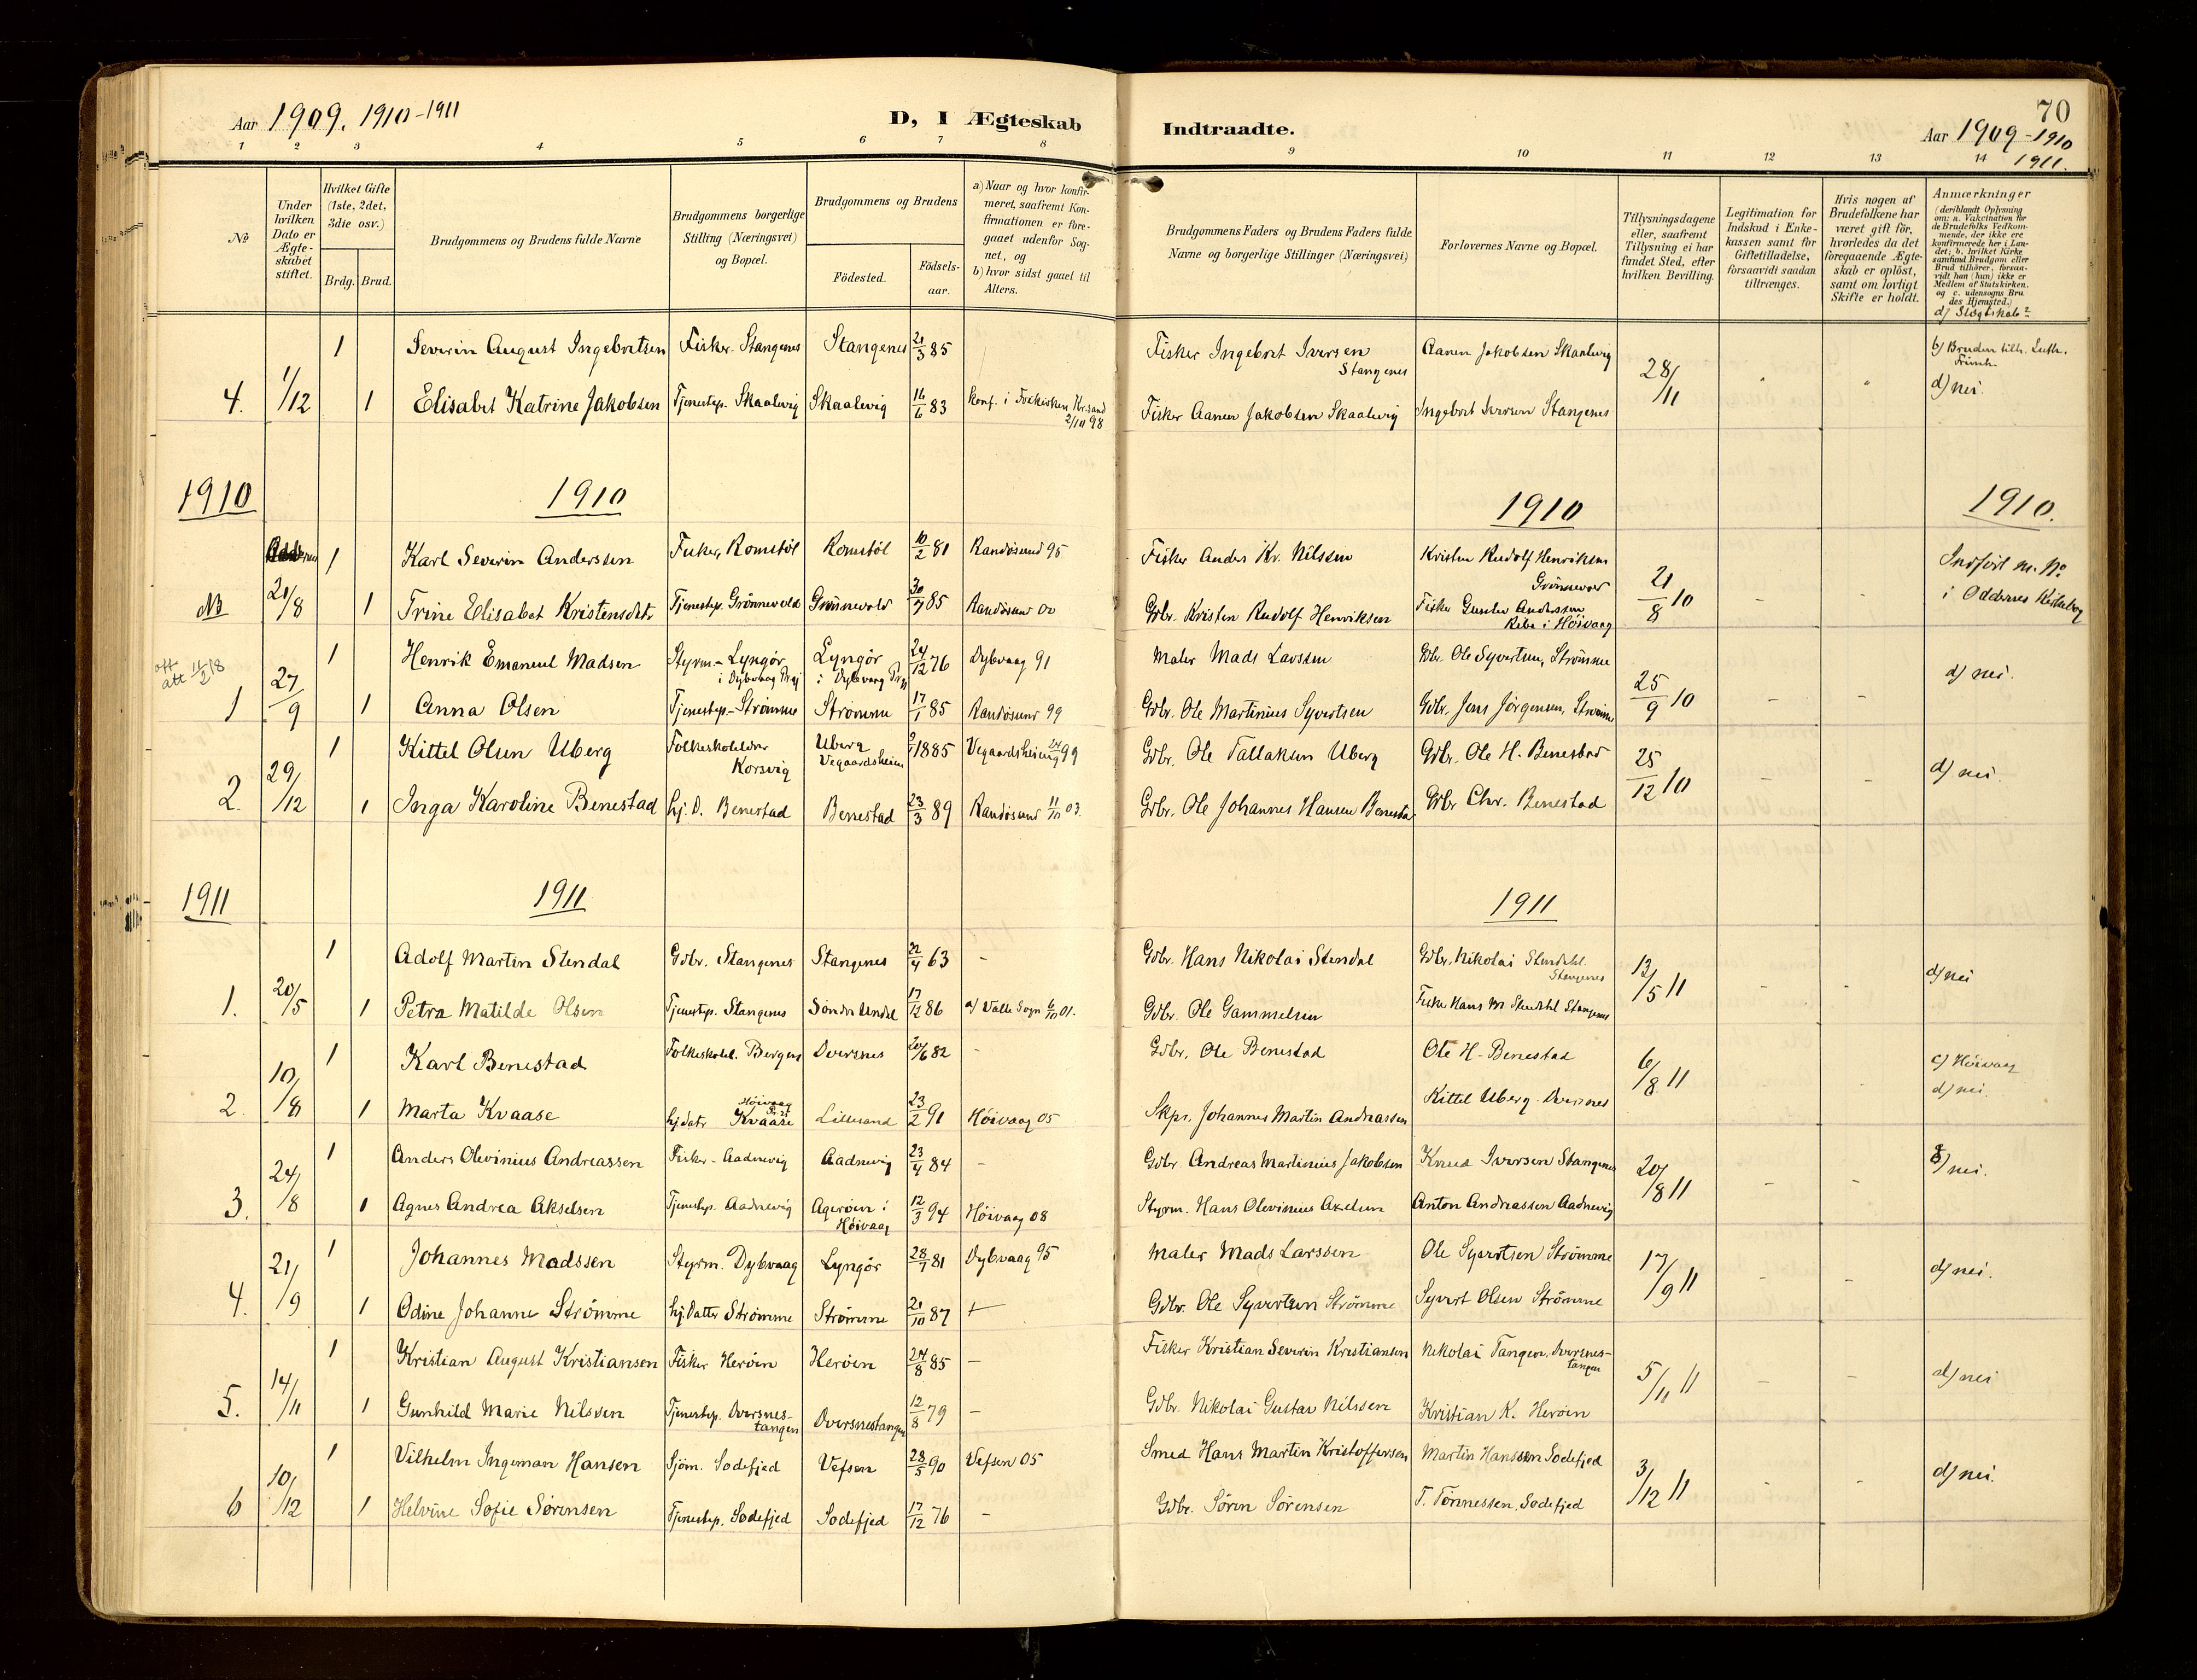 Aar 1909. 1910-1911
D, I Ægteskab
Indtraadte.
70
Aar 1909-1910
1911.
1 2 3 4 5 6 7 8 9 10 11 12 13 14
No
Under hvilken Dato er Ægteskabet stiftet.
Hvilket Gifte (1ste, 2det, 3die osv.)
Brdg. Brud.
Brudgommens og Brudens fulde Navne
Brudgommens borgerlige Stilling (Næringsvei) og Bopæl.
Brudgommens og Brudens
Födested.
Födsels-aar.
a) Naar og hvor konfirmeret, saafremt Konfirmationen er foregaaet udenfor Sognet, og
b) hvor sidst gaaet til Alters.
Brudgommens Faders og Brudens Faders fulde Navne og borgerlige Stillinger (Næringsvei)
Forlovernes Navne og Bopæl.
Tillysningsdagene eller, saafremt Tillysning ei har fundet Sted, efter hvilken Bevilling.
Legitimation for Indskud i Enkekassen samt for Giftetilladelse, forsaavidt saadan tiltrænges.
Hvis nogen af Brudefolkene har været gift för, hvorledes da det foregaaende Ægteskab er oplöst, samt om lovligt Skifte er holdt.
Anmærkninger
(deriblandt Oplysning om: a. Vakcination for de Brudefolks Vedkommende, der ikke ere konfirmerede her i Landet; b. hvilket Kirkesamfund Brudgom eller Brud tilhører, forsaavidt han (hun) ikke er Medlem af Statskirken. og c. udensogns Brudes Hjemsted.)
d) Slægtskab?
1 Severin August Ingebretsen Fisker. Stangenes Stangenes 21/3 85 Fisker Ingebret Iversen Stangenes Aanen Jakobsen Skaalevig 28/11 b) Bruden tilh. Luth. Frimh.
4. 1/12 1 Elisabet Katrine Jakobsen Tjenestep. Skaalevig Skaalevig 16/6 83 Konf. i Frikirken Kr.sand 2/10 98 Fisker Aanen Jakobsen Skaalevig Ingebret Iversen Stangenes d) nei.
1910 1910 1910 1910.
1 Karl Severin Anderssen Fisker, Romstöl Romstöl 10/2 81 Randösund 95 Fisker Anders Kr. Nilssen Kristen Rudolf Henriksen Grönnevold 21/8 10 Indfört m. No
NB 21/8 1 Trine Elisabet Kristensdtr Tjenestep. Grönnevold Grönnevold 30/7 85 Randösund 00 Gdbr. Kristen Rudolf Henriksen Fisker Gunder Anderssen Ribe i Höivaag i Oddernes Kirkebog
att 11/2 18
1 Henrik Emanuel Madsen Styrm.- Lyngör i Dybvaag Prgj Lyngör i Dybvaag Prgj 24/12 76 Dybvaag 91 Maler Mads Larssen Gdbr. Ole Syvertsen, Strömme 25/9 10 d) nei.
1 27/9 1 Anna Olsen Tjenestep.- Strömme Strömme 17/1 85 Randösund 99 Gdbr. Ole Martinius Syvertsen Gdbr. Jens Jörgensen, Strömme
1 Kittel Olsen Uberg Folkeskolelærer Korsvig Uberg Vegaardsheien 1885 Vegaardsheien 99 Gdbr. Ole Tallaksen Uberg Gdbr. Ole H. Benestad 25/12 10 d) nei.
2. 29/12 1 Inga Karoline Benestad hj. D. Benestad Benestad 23/3 89 Randösund 11/10 03. Gdbr. Ole Johannes Hansen Benestad Gdbr Chr. Benestad
1911 1911 1911
1 Adolf Martin Stendal Gdbr. Stangenes Stangenes 22/4 63 - Gdbr. Hans Nikolai Stendal Gdbr. Nikolai Stendahl. Stangenes 13/5 11 d) nei
1. 20/5 1 Petra Matilde Olsen Tjenestep. Stangenes Söndre Undal 17/12 86 a) Valle Sogn 6/10 01. Gdbr. Ole Gammelsen Fisker Hans M Stendahl Stangenes
1 Karl Benestad Folkeskolel. Bergen Dversnes 20/6 82 - Gdbr. Ole Benestad Ole H. Benestad 6/8 11 c) Höivaag
2. 10/8 1 Marta Kvaase hj datr Kvaase Höivaag Prgj Lillesand 23/2 91 Höivaag 05 Skpr. Johannes Martin Andreassen Kittel Uberg. Dversnes d) nei.
1 Anders Olevinius Andreassen Fisker - Aadnevig Aadnevig 23/4 84 - Gdbr. Andreas Martinius Jakobsen Knud Iversen Stangenes 20/8 11 d) nei.
3. 24/8 1 Agnes Andrea Akselsen Tjenestep. Aadnevig Ageröen i Höivaag 12/3 94 Höivaag 08 Styrm. Hans Olevinius Axelsen Anton Andreassen Aadnevig
1 Johannes Madssen Styrm. Dybvaag Lyngör 28/7 81 Dybvaag 95 Maler Mads Larssen Ole Syvertsen Strömme 17/9 11 d) nei.
4. 21/9 1 Odine Johanne Strömme hj. Datter Strömme Strömme 21/10 87 Gdbr. Ole Syvertsen Strömme Syvert Olsen Strömme
1 Kristian August Kristiansen Fisker Heröen Heröen 24/8 85 - Fisker Kristian Severin Kristiansen Nikolai Tangen. Dversnes-tangen 5/11 11 d) nei
5. 14/11 1 Gunhild Marie Nilssen Tjenestep. Dversnes-tangen Dversnestangen 12/8 79 - Gdbr. Nikolai Gustav Nilssen Kristian K. Heröen
1 Vilhelm Ingeman Hansen Sjöm. Sodefjed Vefsen 28/5 90 Vefsen 05 Smed Hans Martin Kristoffersen Martin Hanssen Sodefjed 3/12 11 d) nei.
6 10/12 1 Helvine Sofie Sörensen Tjenestep. Sodefjed Sodefjed 17/12 76 - Gdbr. Sören Sörensen T. Tönnessen, Sodefjed